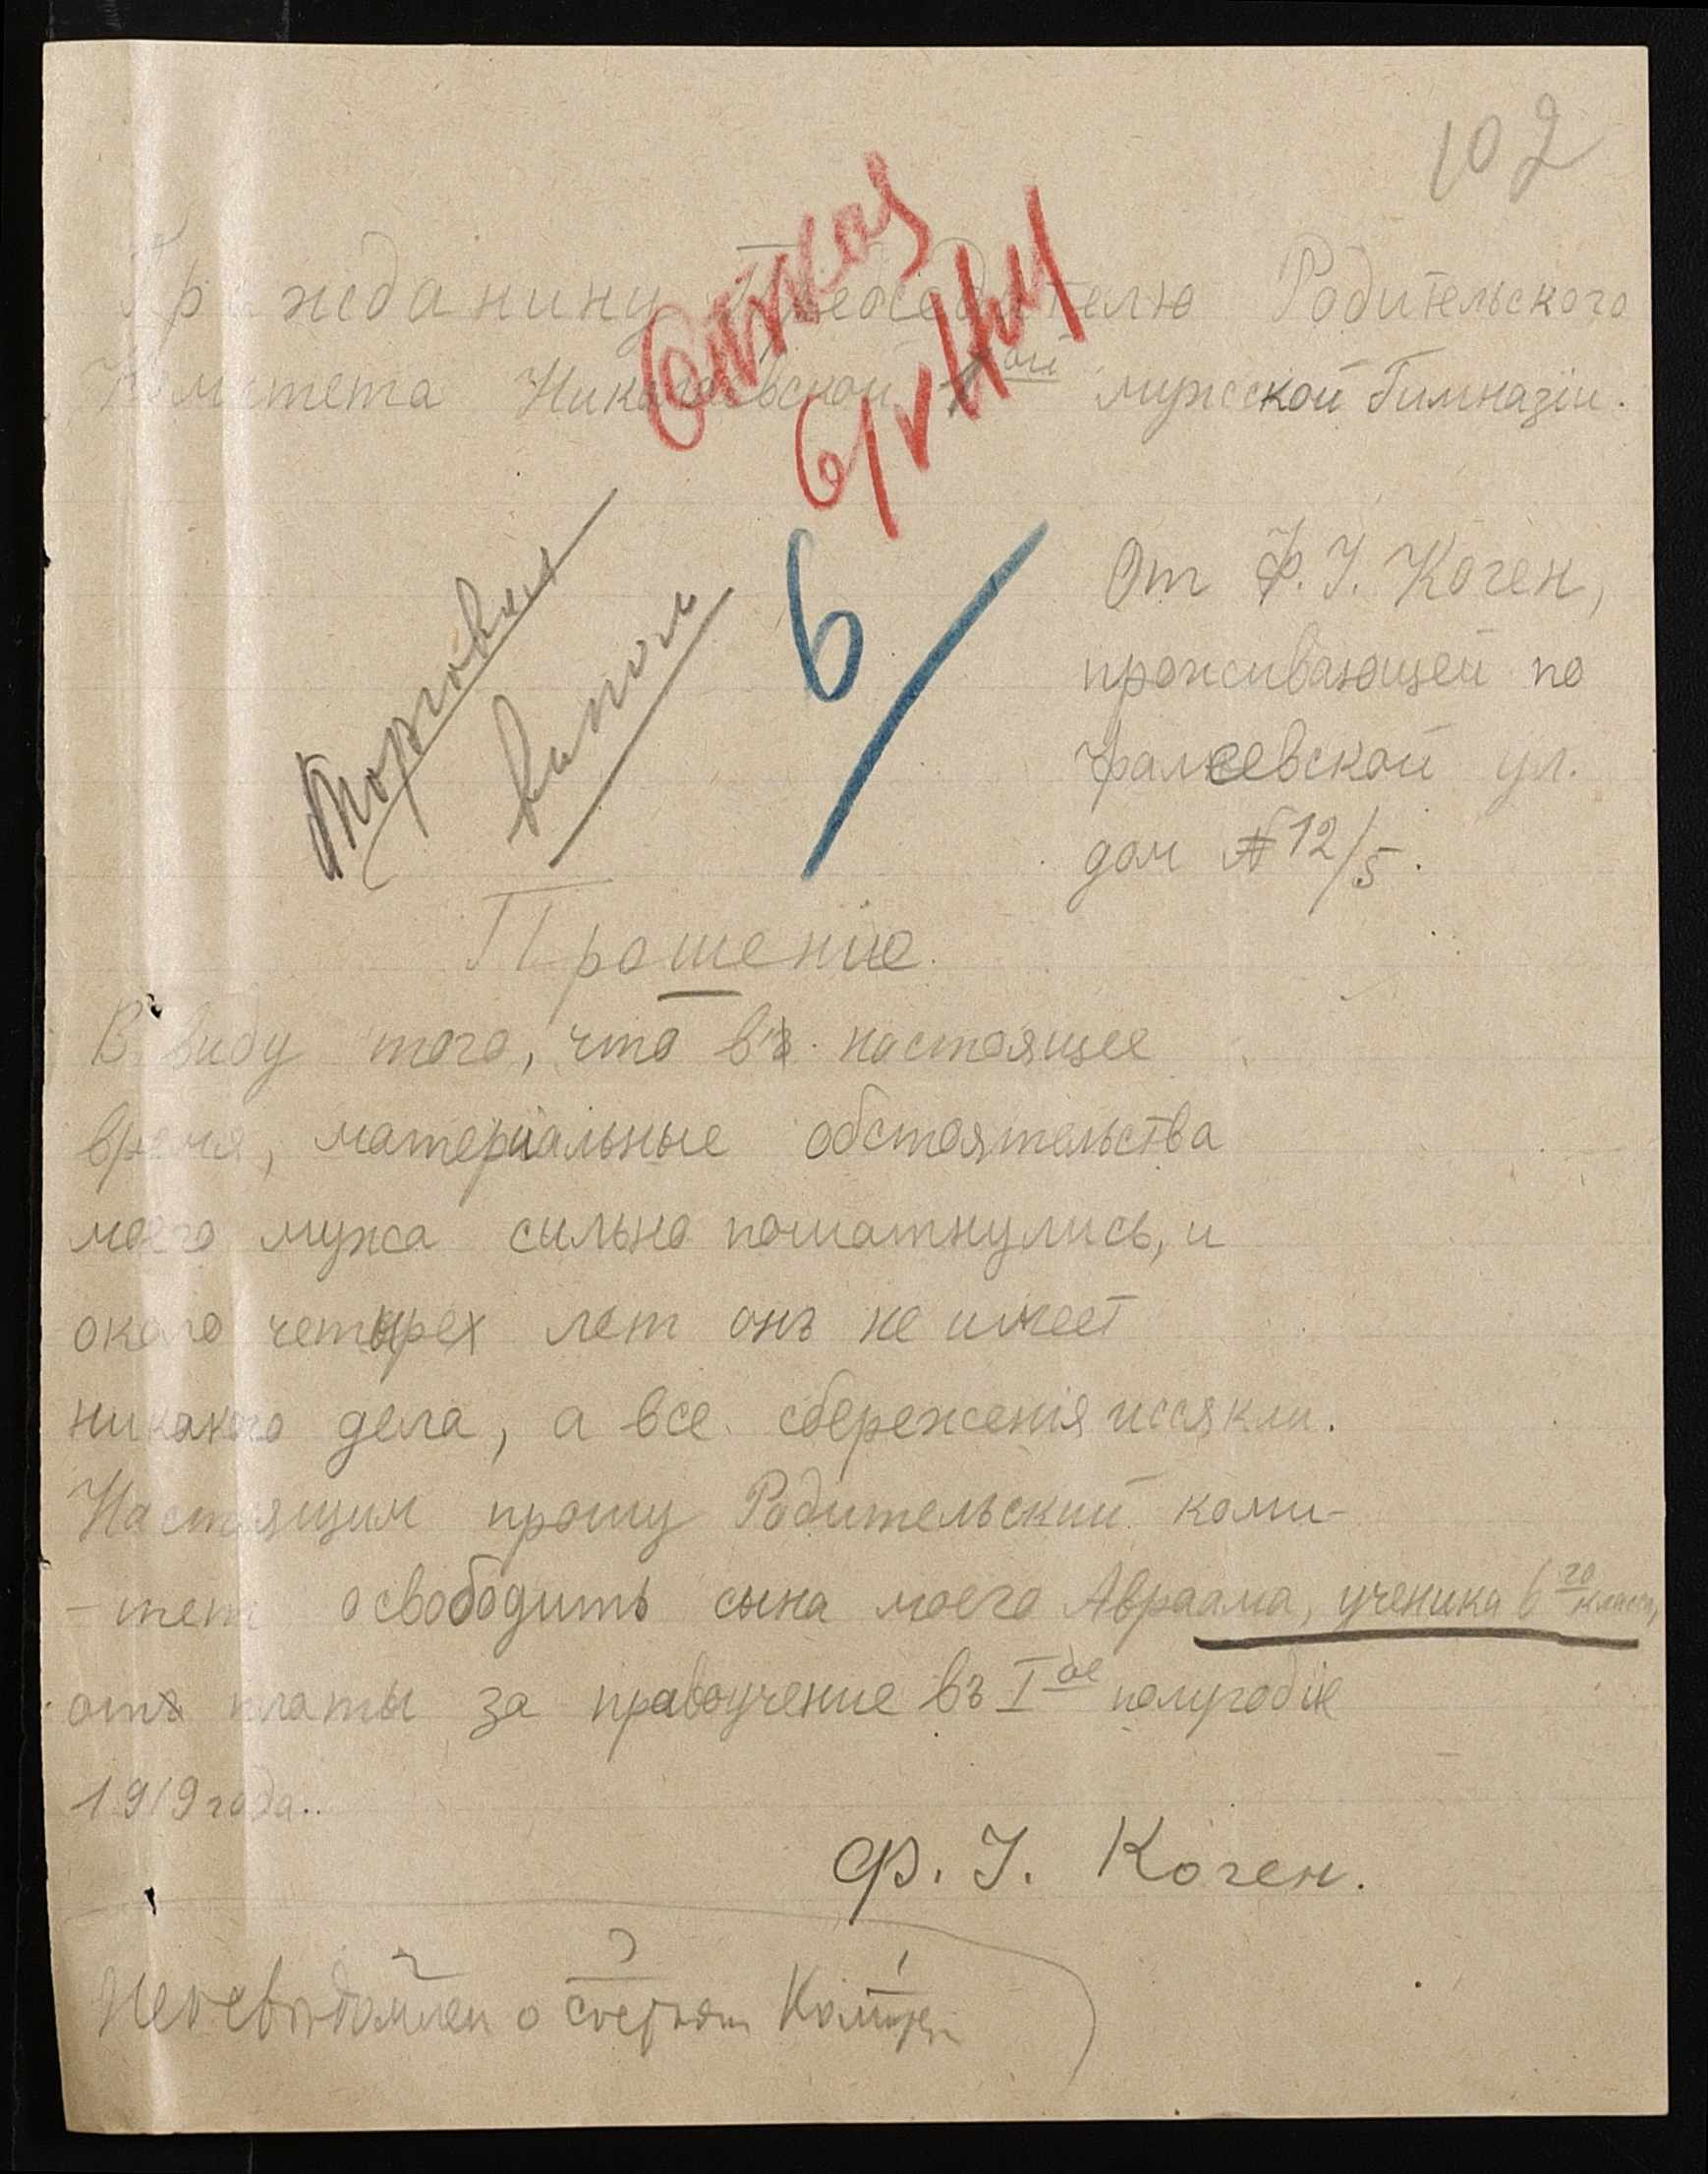 102
Гражданину Председателю Родительского
Комитета Николаевской 1ой мужской Гимназіи.
Отказ
От Ф. І. Коген,
проживающей по
Фалеевской ул.
дом № 12/5.
Торговля
вином
6/
Прошеніе.
В виду того, что въ настоящее
время, матеріальные обстоятельства
моего мужа сильно пошатнулись, и
около четырех лет онъ не имеет
никакого дела, а все сбереженія иссякли.
Настоящим прошу Родительский коми-
-тет освободить сына моего Авраама, ученика 6го класса,
отъ платы за правоучение въ I ое полугодіе
1919 года.
Ф. І. Коген.
Неосведомлен о